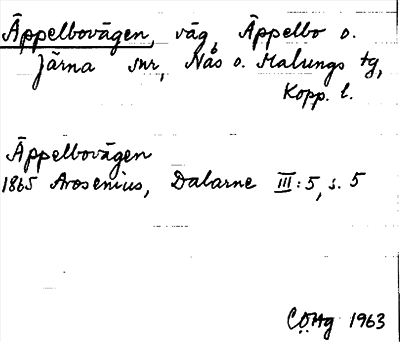 Äppelbovägen, väg, Äppelbo o.
Järna snr, Nås o. Malungs tg,
Kopp. l.
Äppelbovägen
1865 Arosenius, Dalarne III:5, s. 5
CÖHg 1963